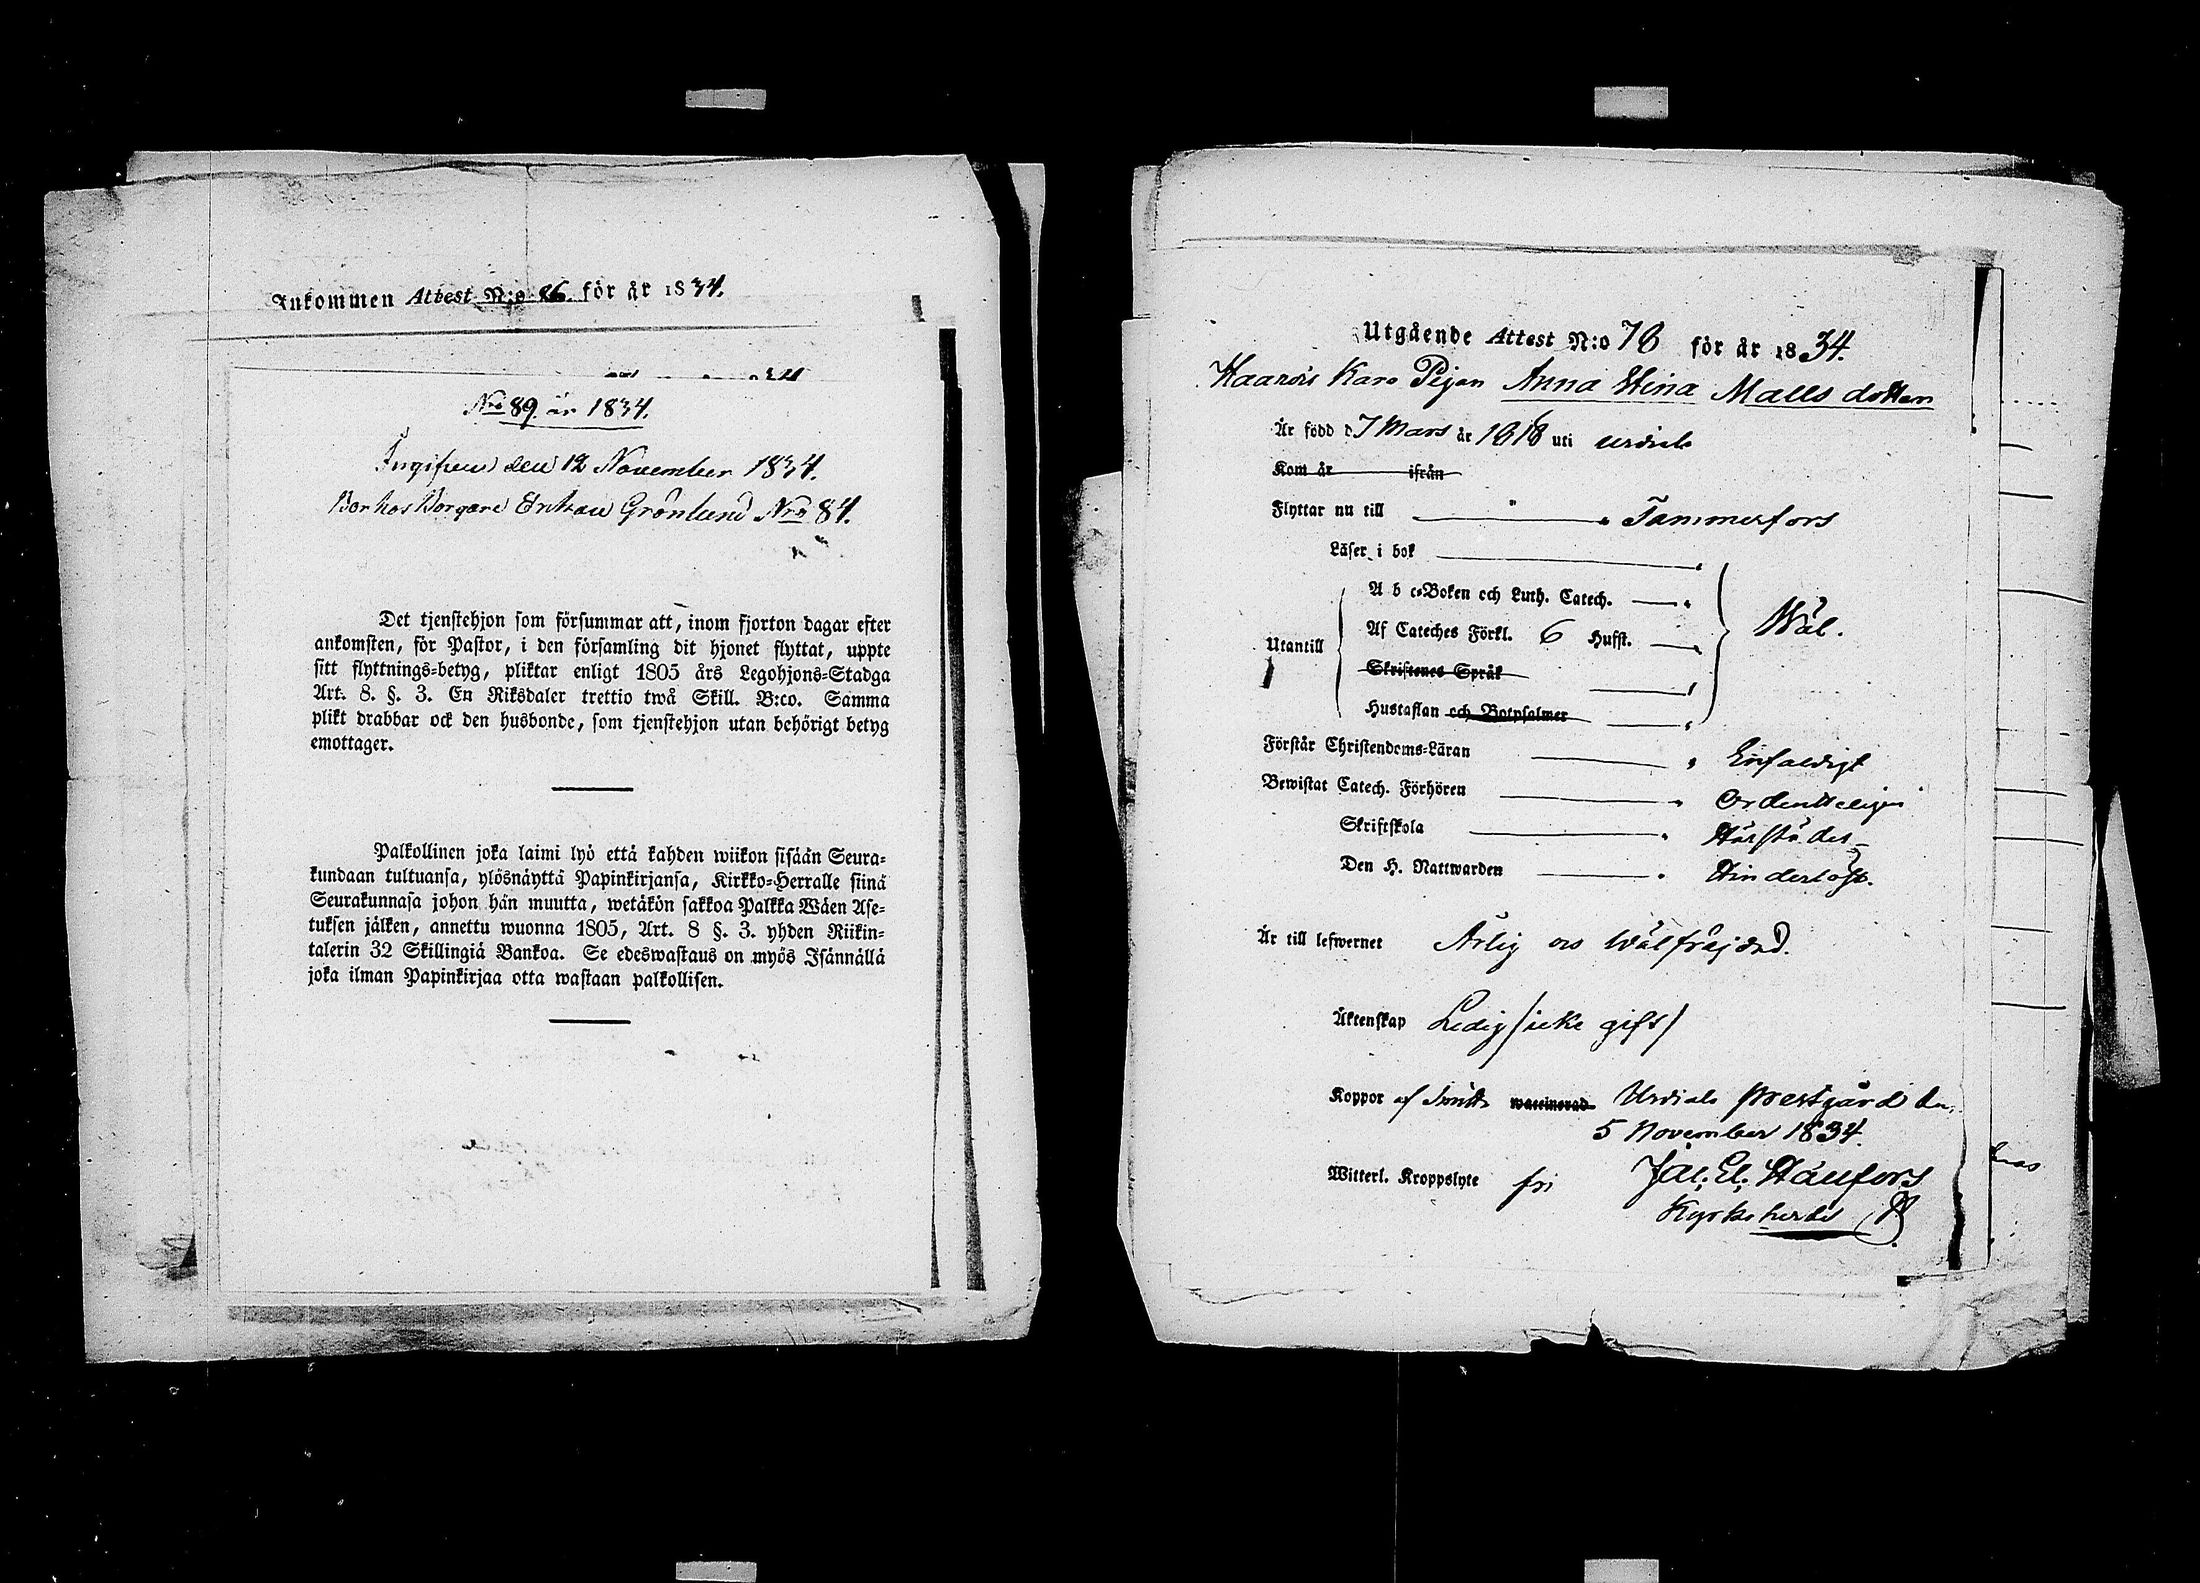 Inkommen Attest N:o 86. för år 1834.
Nro 89. år 1834.
Ingifven den 12 November 1834.
Bor hos Borgare Enkan Grönlund Nro 84.
Det tjenstehjon som försummar att, inom fjorton dagar efter
ankomsten, för Pastor, i den församling dit hjonet flyttat, uppte
sitt flyttnings-betyg, pliktar enligt 1805 års Legohjons-Stadga
Art. 8. §. 3. En Riksdaler trettio twå Skill. B:co. Samma
plikt drabbar ock den husbonde, som tjenstehjon utan behörigt betyg
emottager.
Palkollinen joka laimi lyö että kahden wiikon sisään Seura-
kundaan tultuansa, ylösnäyttä Papinkirjansa, Kirkko-Herralle siinä
Seurakunnasa johon hän muutta, wetäkön sakkoa Palkka Wäen Ase-
tuksen jälken, annettu wuonna 1805, Art. 8 §. 3. yhden Riikin-
talerin 32 Skillingiä Bankoa. Se edeswastaus on myös Isännällä
joka ilman Papinkirjaa otta wastaan palkollisen.
Utgående Attest N:o 78 för år 1834.
Karo Pigan Anna Stina Matts dotter
Är född d 7 Mars år 1818 uti Urdiala
Kom år ifrån
Flyttar nu till Tammerfors
Läser i bok
A b c-Boken och Luth. Catech.
Utantill Af Cateches Förkl. 6 Hufst. Wäl.
Skriftenes Språk
Hustaflan och Botpsalmer
Förstår Christendoms-Läran Enfaldigt
Bewistat Catech. Förhören Ordentteligen
Skriftskola
Den H. Nattwarden Hinderlöst.
Är till lefwernet Ärlig och Wälfräjdad.
Äktenskap Ledig /icke gift/
Koppor af Smitta waccinerad Urdiala prestgård den
5 November 1834.
Witterl. Kroppslyte fri
Kyrkoherde